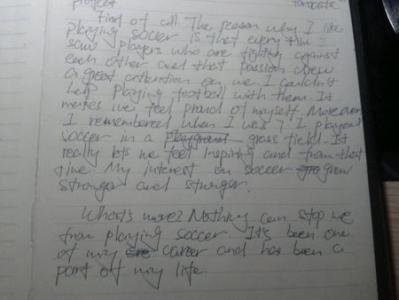 project favorite
First of all The reason why I like
playing soccer is that every time I
saw players who are fighting against
each other and that passion drew
a great attention on me I couldn't
help playing football with them. It
makes me feel proud of myself. Moreover
I remembered when I was 7 I played
soccer in a playground grass field. It
really lets me feel inspiring and from that
time My interest on soccer grew
stronger and stronger.
What's more? Nothing can stop me
from playing soccer It's been one
of my career and has been a
part of my life.